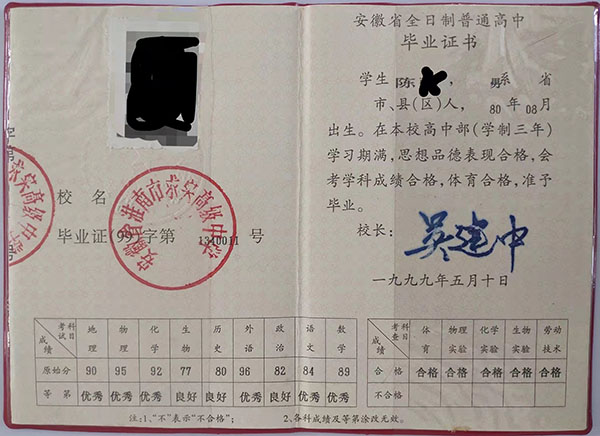 安徽省全日制普通高中
毕业证书
学生 陈 ， 男 系 省
市、县(区)人， 80 年 08 月
出生。在本校高中部(学制三年)
学习期满，思想品德表现合格，会
考学科成绩合格，体育合格，准予
毕业。
校长： 吴建中
一九九九年五月十日
校名
安徽省淮南市 高级中学
毕业证(99)字第 1310011 号
考试科目 成绩 地理 物理 化学 生物 历史 外语 政治 语文 数学
原始分 90 95 92 77 80 96 82 84 89
等第 优秀 优秀 优秀 良好 良好 优秀 良好 优秀 优秀
考查科目 成绩 体育 物理实验 化学实验 生物实验 劳动技术
合格 合格 合格 合格 合格 合格
不合格
注:1、“不”表示“不合格”； 2、各科成绩及等第涂改无效。